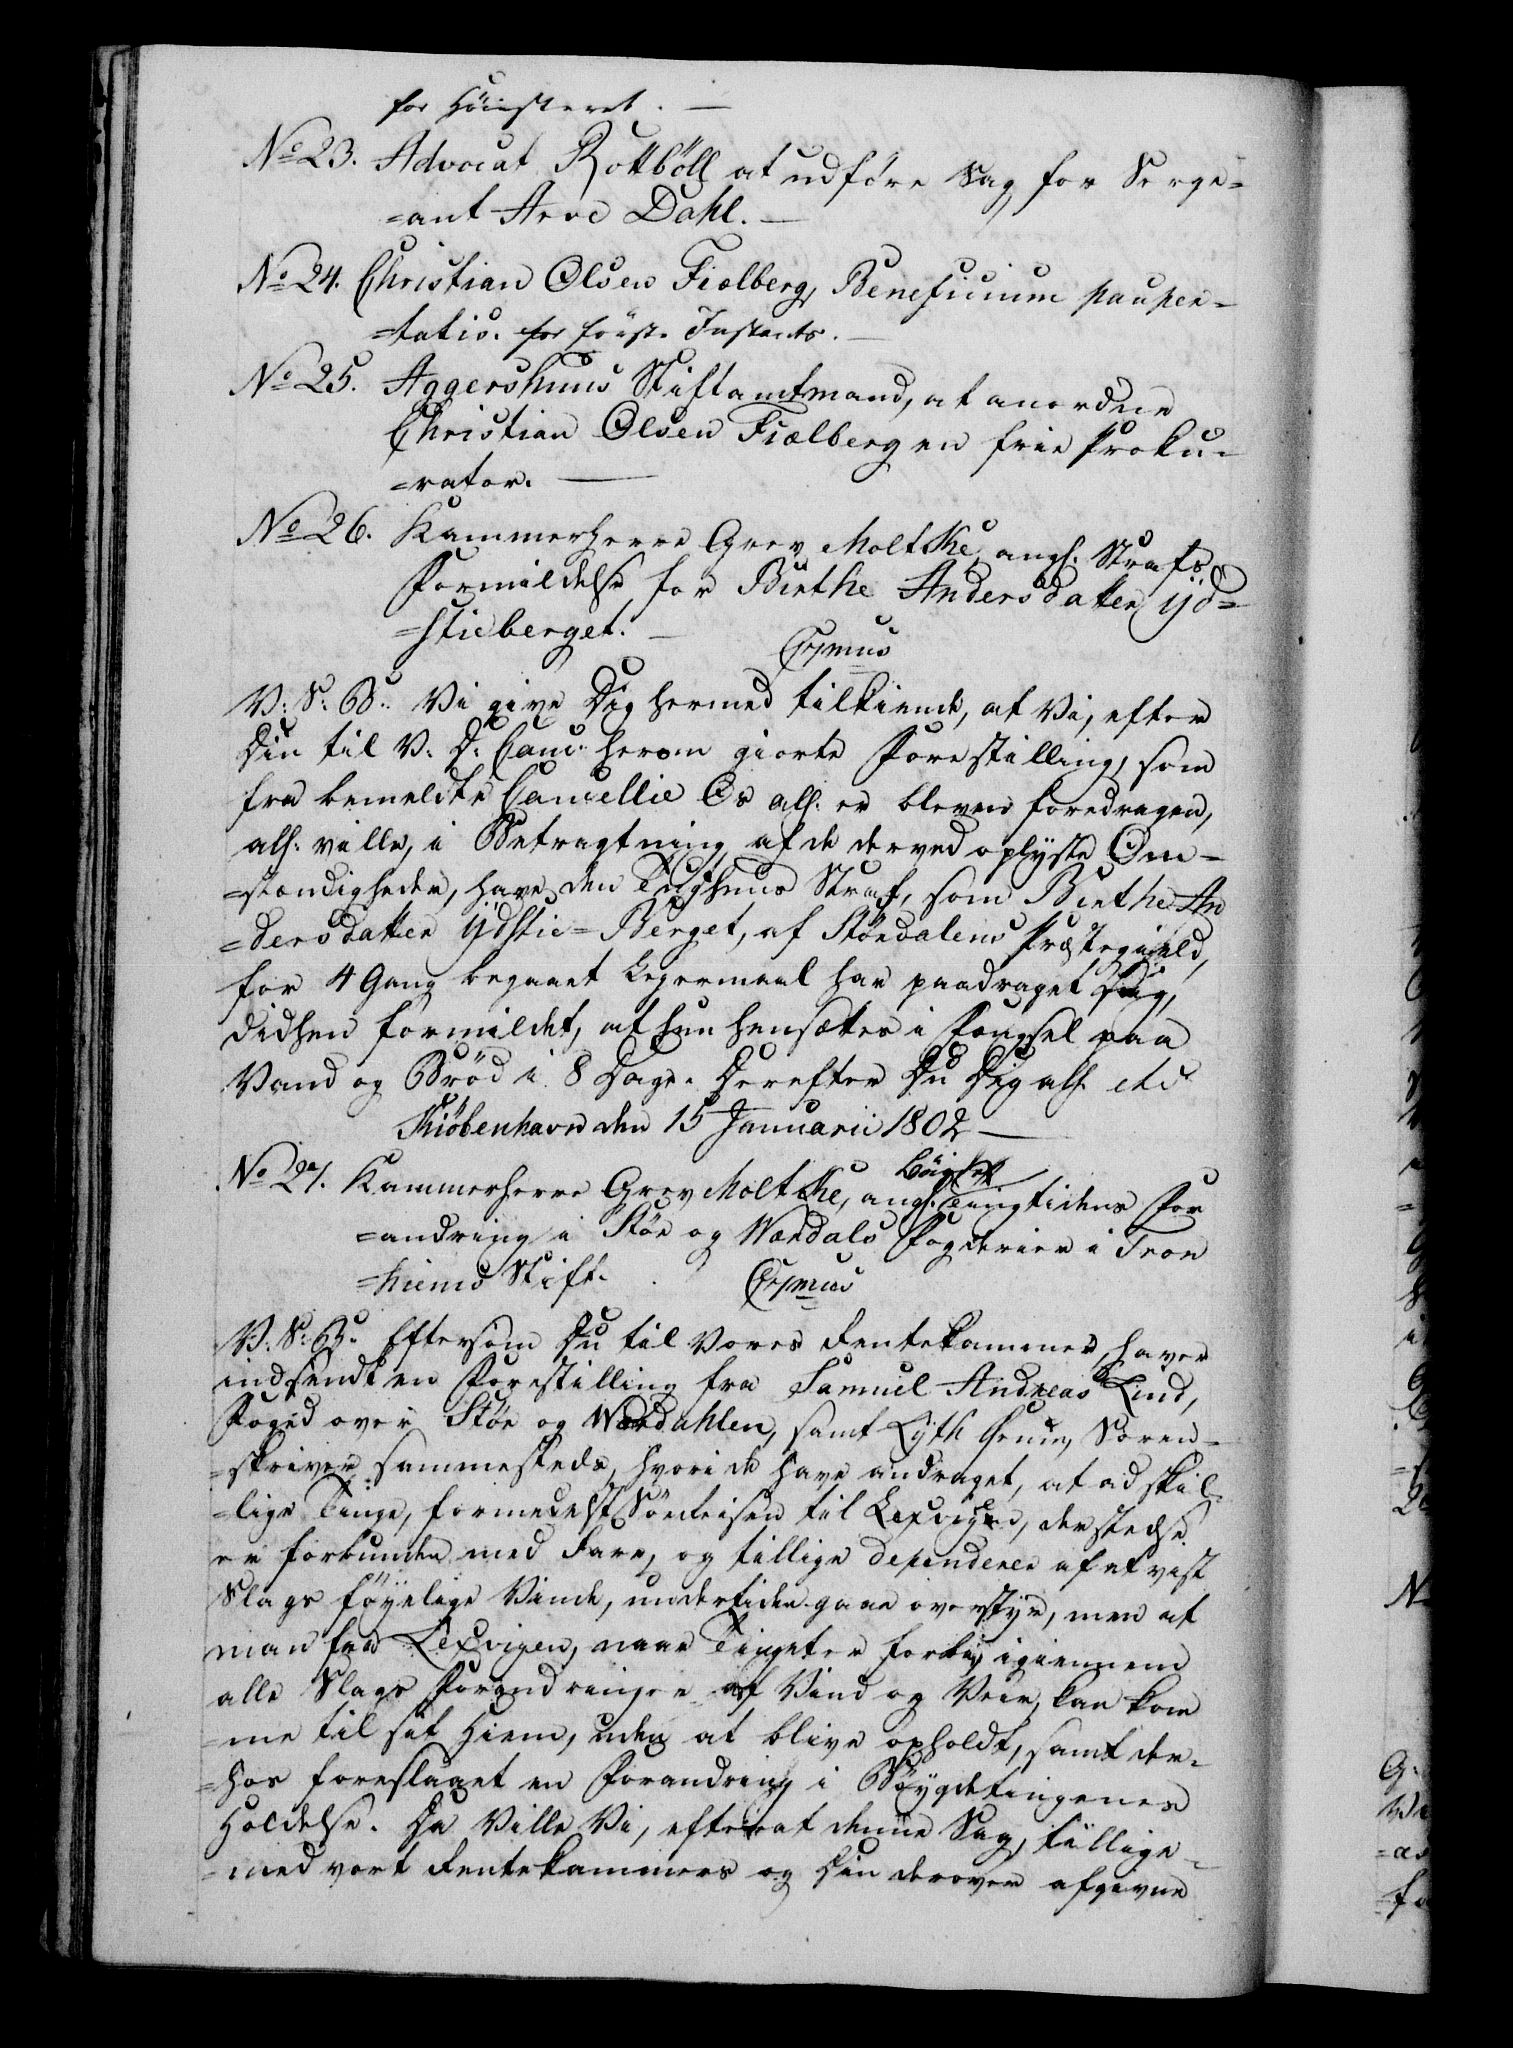 for Høiesteret. —
No 23. Advocat Rottbøll at udføre Sag for Serge=
=ant Arve Dahl. —
No 24. Christian Olsen Fielberg, Beneficium pauper=
=tatis. for første Instants. —
No 25. Aggershuus Stiftamtmand, at anordne
Christian Olsen Fielberg en frie Proku=
=rator. —
No 26. Kammerherre Grev Moltke, angl. Strafs
Formildelse for Birthe Andersdatter Yd=
=stieberget. —
Expmus
V: S: B: Vi give Dig hermed tilkiende, at Vi, efter
Din til V. D: Canc. herom giorte Forestilling, som
fra bemeldte Cancellie Os all: er bleven foredragen,
all: ville, i Betragtning af de derved oplyste Om=
=stændigheder, have den Tugthuus Straf, som Birthe An
=dersdatter Ydstie=Berget, af Størdalens Præstegield,
for 4 Gang begaaet Leiermaal har paadraget Sig,
didhen formildet, at hun hensættes i Fængsel paa
Vand og Brød i 8 Dage. Derefter Du Dig all. etc
Kiøbenhavn den 15 Januarii 1802 —
No 27. Kammerherre Grev Moltke, angl. Bøigde Tingtidens For
=andring i Stør og Værdals Fogderier i Tron
=hiems Stift.
Expmus
V: S: B: Eftersom Du til Vores Rentekammer haver
indsendt en Forestilling fra Samuel Andreas Lind,
Foged over Stør og Værdahlen, samt Lyth Soren=
=skriver sammesteds, hvori de have andraget, at adskil
=lige Tinge, formedelst Søereisen til Lexvigen, der stedse
er forbunden med Fare, og tillige dependerer af et vist
Slags føyelige Vinde, undertiden gaae overstyr, men at
man fra Lexvigen, naar Tinget er forbi, igiennem
alle Slags Forandringer af Vind og Veir, kan kom
=me til sit Hiem, uden at blive opholdt, samt der=
=hos foreslaaet en Forandring i Bøygdetingenes
Holdelse. Da Ville Vi, efterat denne Sag, tillige=
=med vort Rentekammers og Din derover afgivne